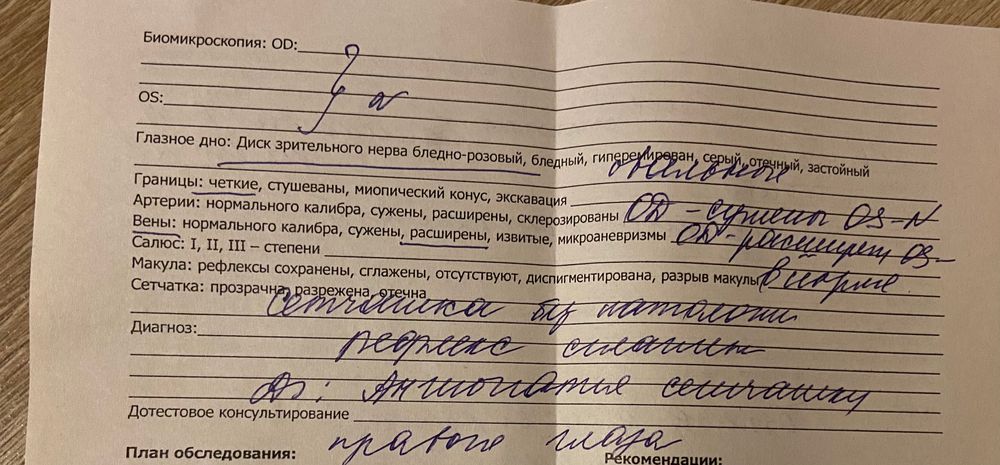 Биомикроскопия: OD:
OS: N
Глазное дно: Диск зрительного нерва бледно-розовый, бледный, гиперемирован, серый, отечный, застойный
Границы: четкие, стушеваны, миопический конус, экскавация
Артерии: нормального калибра, сужены, расширены, склерозированы OD - сужены OS-N
Вены: нормального калибра, сужены, расширены, извитые, микроаневризмы OD-расширен OS-
Салюс: I, II, III – степени
в норме
Макула: рефлексы сохранены, сглажены, отсутствуют, диспигментирована, разрыв макулы
Сетчатка: прозрачна, разрежена, отечна
сетчатка без патологи
Диагноз:
рефлекс
Ds: Ангиопатия сетчатки
Дотестовое консультирование
правого глаза
План обследования: Рекомендации: